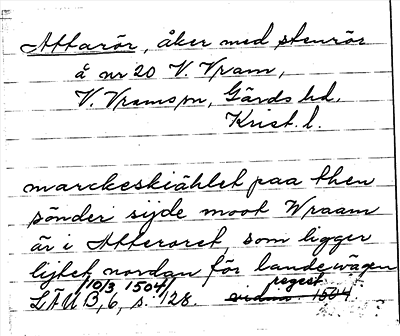 Attarör, åker med stenrör
å nr 20 V. Vram,
V. Vrams sn, Gärds hd,
Krist. l.
marckeskiählet paa then
sönder sijde moot Wraam
är i Atteroret, som ligger
lijtet nordan för landzwägen
10/3 1504 regest
LÄU B, 6, s. 128. vidim. 1504